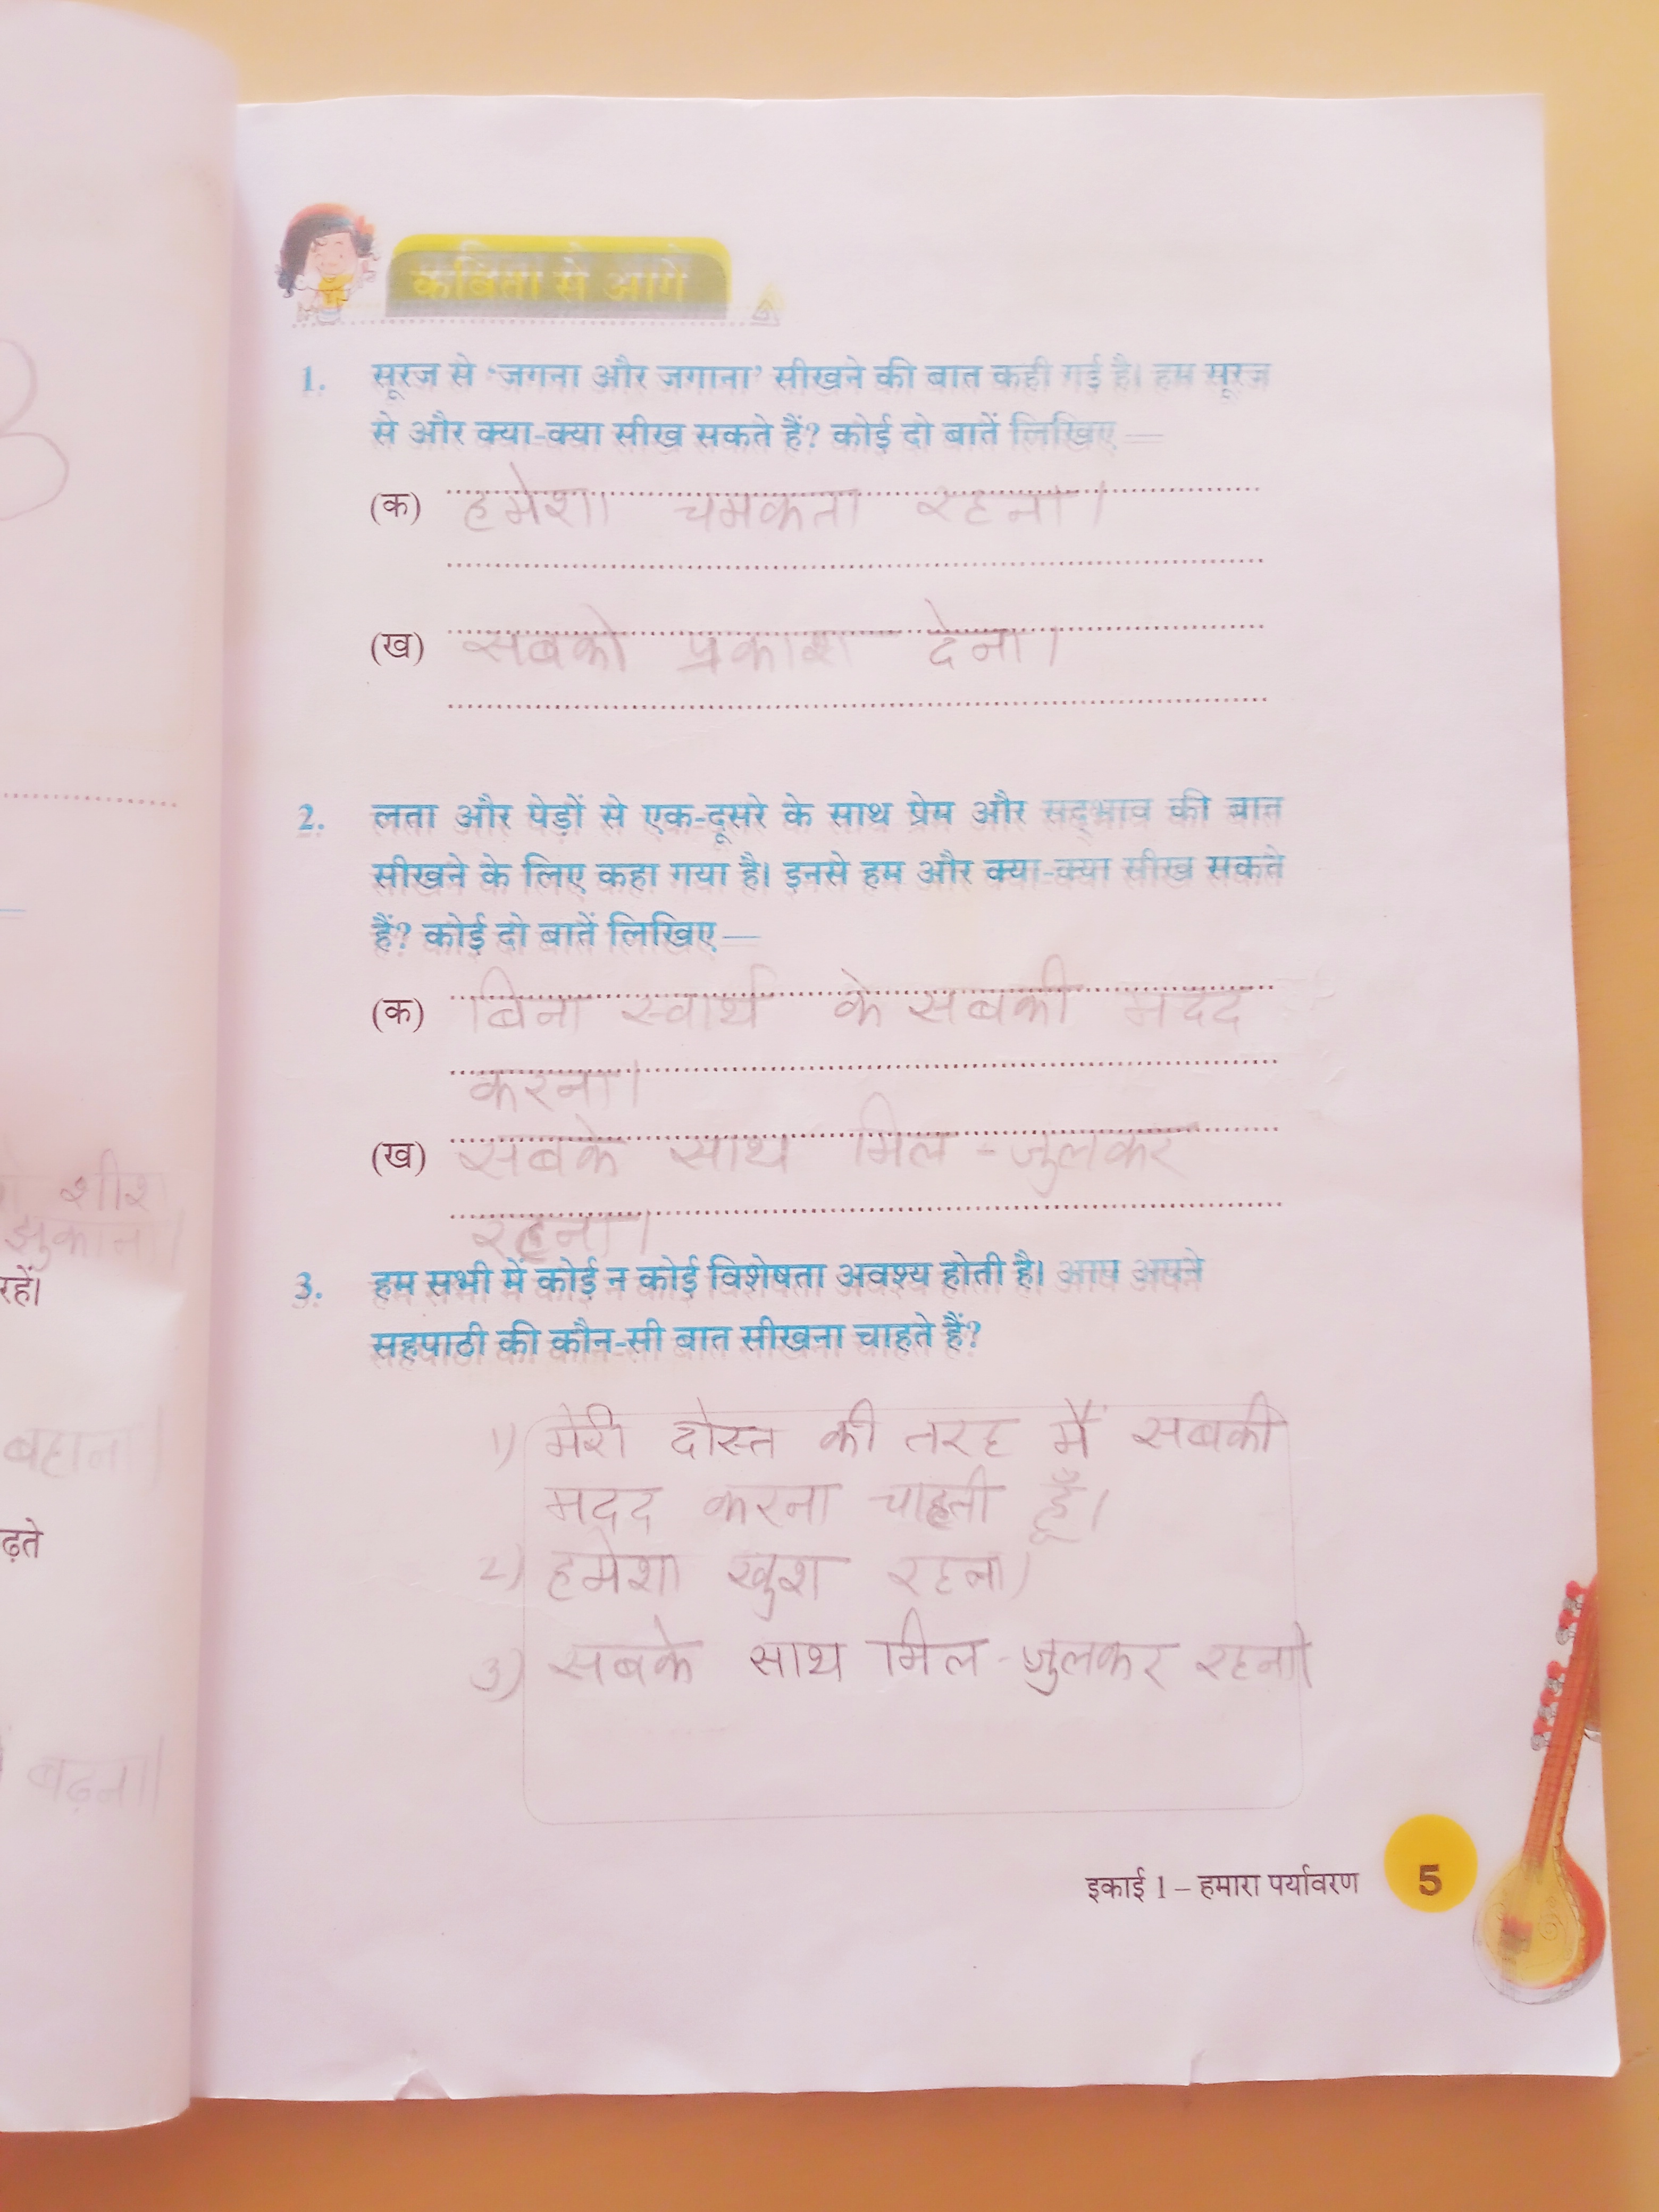 कविता से आगे
1. सूरज से ‘जगना और जगाना’ सीखने की बात कही गई है। हम सूरज
से और क्या-क्या सीख सकते हैं? कोई दो बातें लिखिए —
(क) हमेशा चमकता रहना।
(ख) सबको प्रकाश देना।
2. लता और पेड़ों से एक-दूसरे के साथ प्रेम और सद्भाव की बात
सीखने के लिए कहा गया है। इनसे हम और क्या-क्या सीख सकते
हैं? कोई दो बातें लिखिए —
(क) बिना स्वार्थ के सबकी मदद
करना।
(ख) सबके साथ मिल-जुलकर
रहना।
3. हम सभी में कोई न कोई विशेषता अवश्य होती है। आप अपने
सहपाठी की कौन-सी बात सीखना चाहते हैं?
1) मेरी दोस्त की तरह मैं सबकी
मदद करना चाहती हूँ।
2) हमेशा खुश रहना।
3) सबके साथ मिल-जुलकर रहना।
इकाई 1 – हमारा पर्यावरण 5
शीश
झुकाना।
रहें।
बहाना।
ढ़ते
बढ़ना।